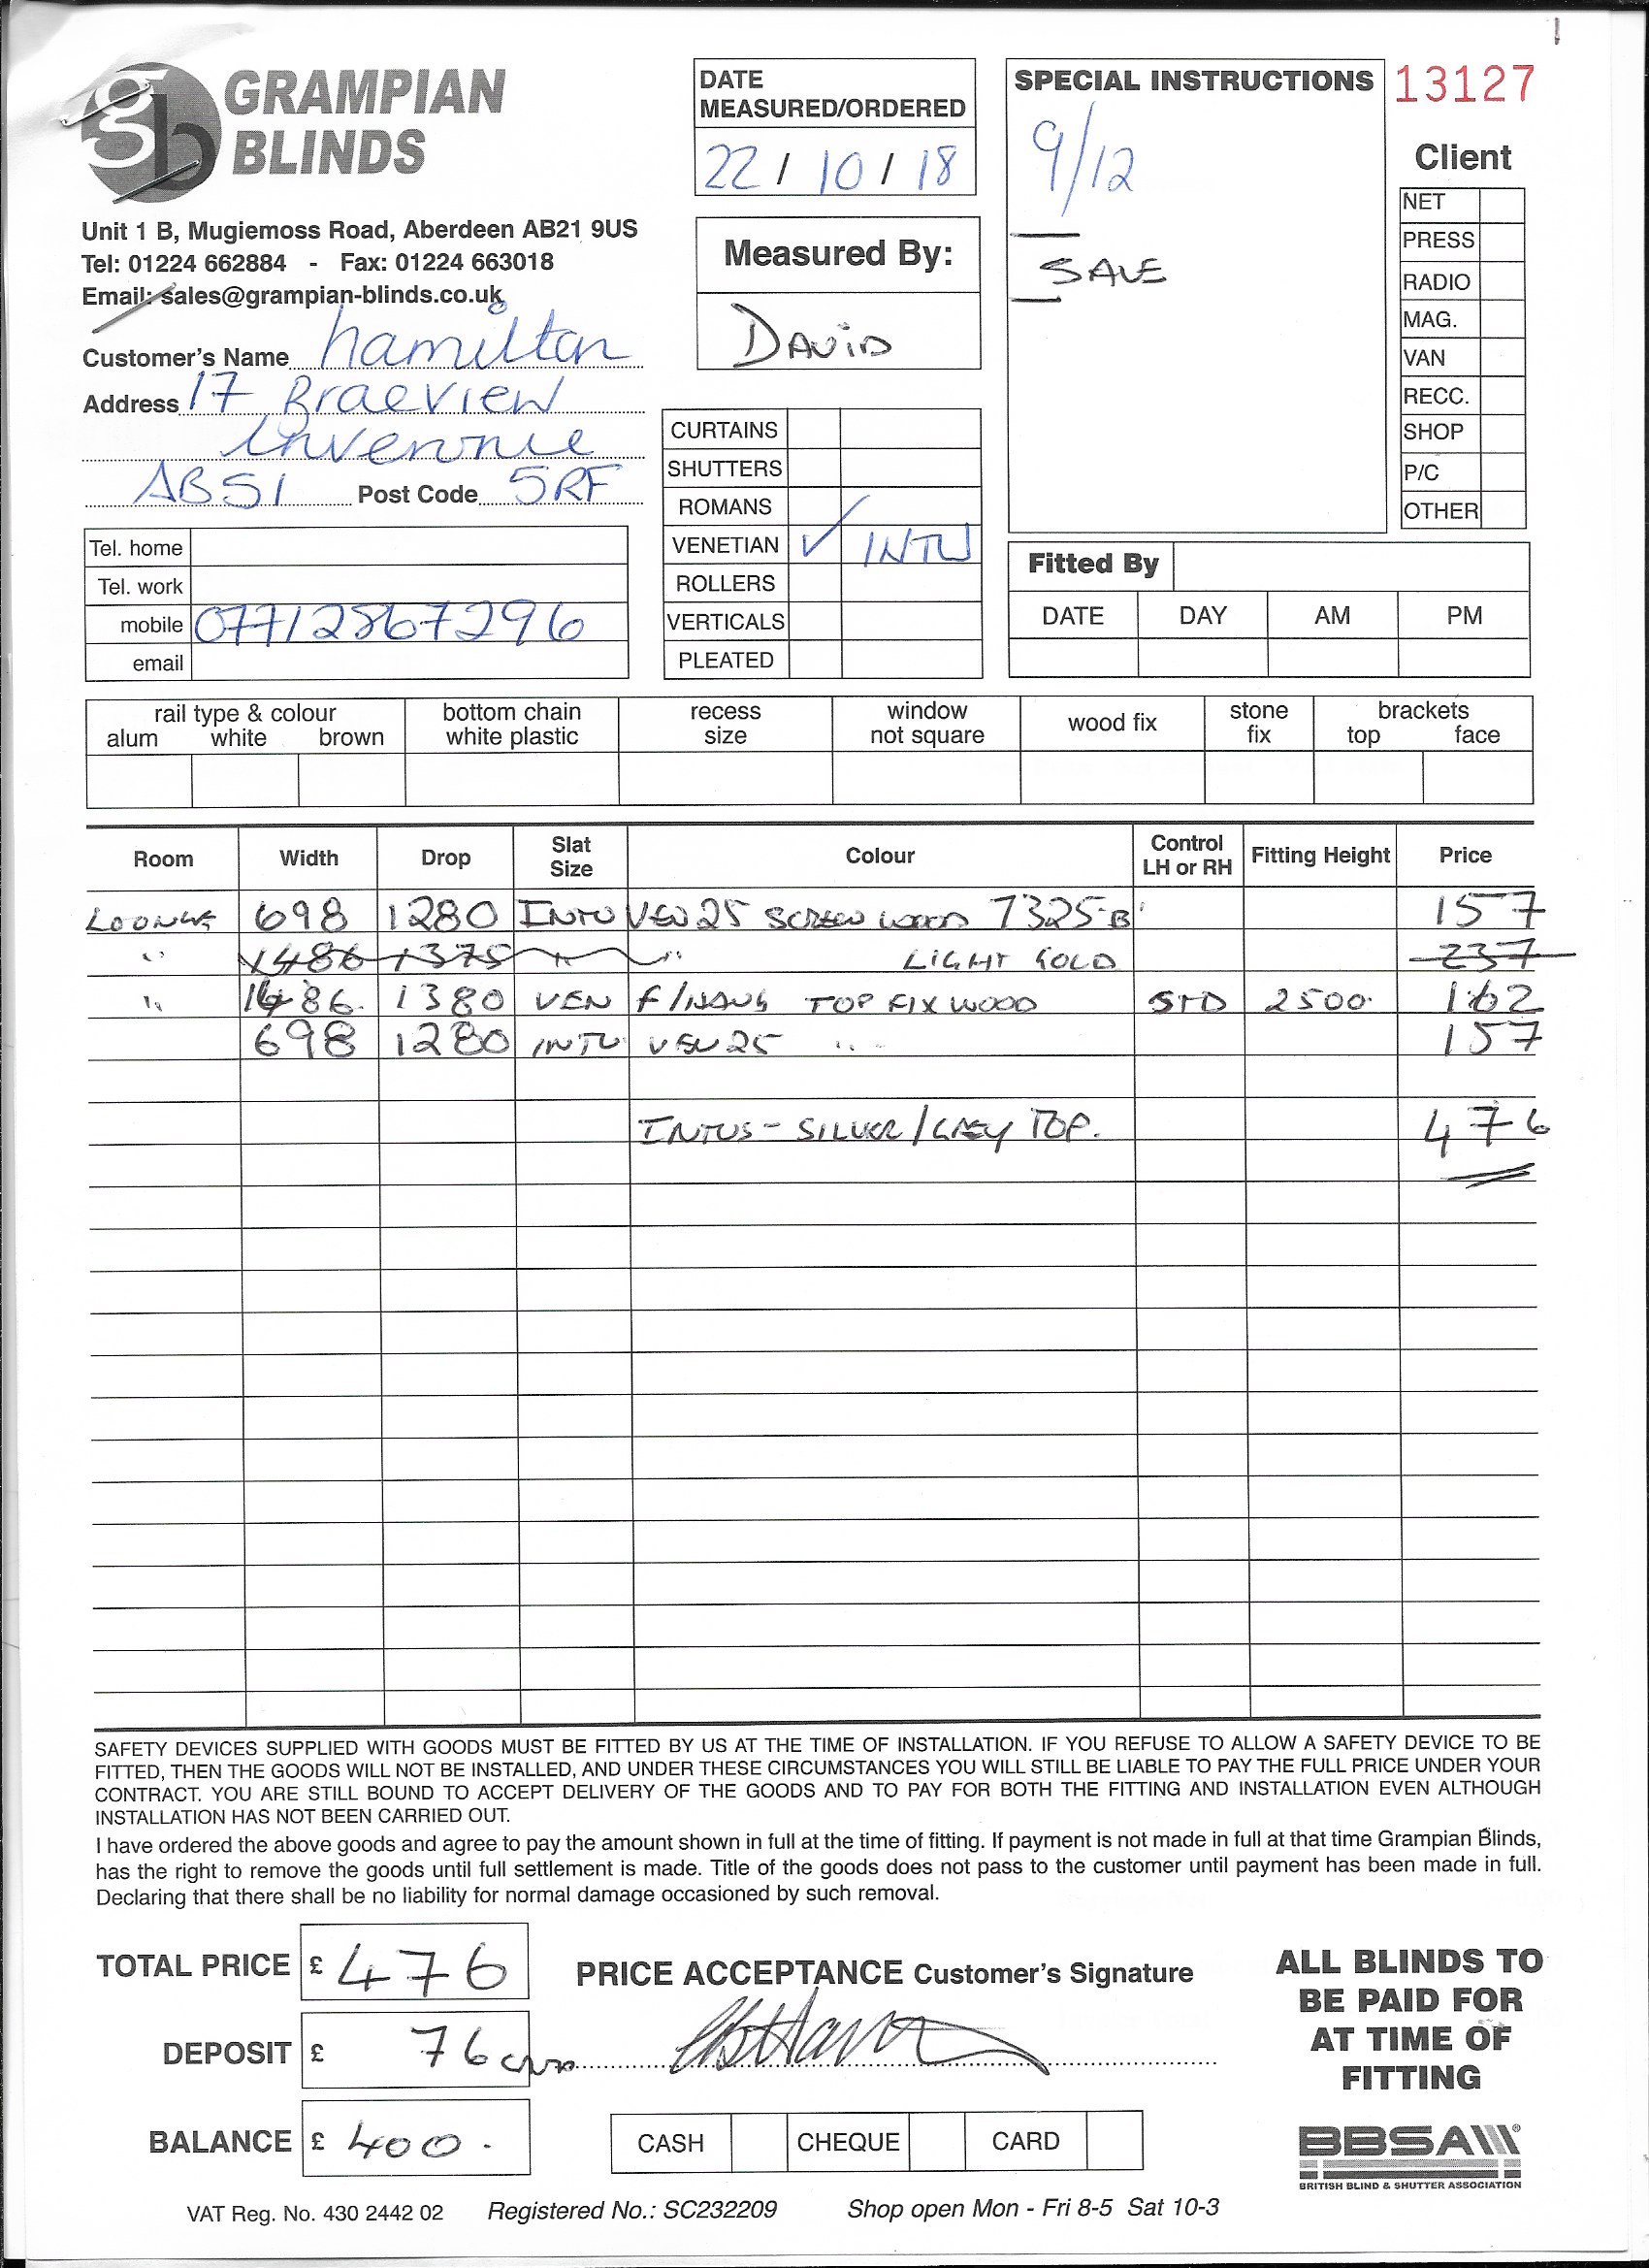 GRAMPIAN BLINDS
Unit 1 B, Mugiemoss Road, Aberdeen AB21 9US
Tel: 01224 662884 - Fax: 01224 663018
Email: sales@grampian-blinds.co.uk
Customer's Name hamilton
Address 17 Braeview
AB51 Post Code 5RF
Tel. home
Tel. work
mobile 07712867296
email
DATE MEASURED/ORDERED
22 / 10 / 18
Measured By:
DAVID
CURTAINS
SHUTTERS
ROMANS
VENETIAN ✓ INTU
ROLLERS
VERTICALS
PLEATED
SPECIAL INSTRUCTIONS
9/12
SALE
13127
Client
NET
PRESS
RADIO
MAG.
VAN
RECC.
SHOP
P/C
OTHER
Fitted By
DATE DAY AM PM
rail type & colour
alum white brown
bottom chain white plastic
recess size
window not square
wood fix
stone fix
brackets
top face
Room Width Drop Slat Size Colour Control LH or RH Fitting Height Price
698 1280 INTU VEN 25 SCREEN WOOD 7325-B 157
" 1486 1375 " LIGHT GOLD 237
" 1486 1380 VEN TOP FIX WOOD STD 2500 162
698 1280 INTU VEN 25 " 157
INTUS - SILVER/GREY TOP. 476
SAFETY DEVICES SUPPLIED WITH GOODS MUST BE FITTED BY US AT THE TIME OF INSTALLATION. IF YOU REFUSE TO ALLOW A SAFETY DEVICE TO BE
FITTED, THEN THE GOODS WILL NOT BE INSTALLED, AND UNDER THESE CIRCUMSTANCES YOU WILL STILL BE LIABLE TO PAY THE FULL PRICE UNDER YOUR
CONTRACT. YOU ARE STILL BOUND TO ACCEPT DELIVERY OF THE GOODS AND TO PAY FOR BOTH THE FITTING AND INSTALLATION EVEN ALTHOUGH
INSTALLATION HAS NOT BEEN CARRIED OUT.
I have ordered the above goods and agree to pay the amount shown in full at the time of fitting. If payment is not made in full at that time Grampian Blinds,
has the right to remove the goods until full settlement is made. Title of the goods does not pass to the customer until payment has been made in full.
Declaring that there shall be no liability for normal damage occasioned by such removal.
TOTAL PRICE £ 476
DEPOSIT £ 76
BALANCE £ 400.
PRICE ACCEPTANCE Customer's Signature
CASH CHEQUE CARD
ALL BLINDS TO
BE PAID FOR
AT TIME OF
FITTING
BBSA
BRITISH BLIND & SHUTTER ASSOCIATION
VAT Reg. No. 430 2442 02 Registered No.: SC232209 Shop open Mon - Fri 8-5 Sat 10-3